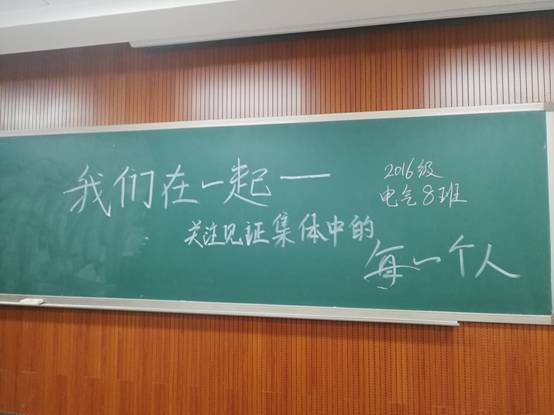 我们在一起——
2016级
电气8班
关注见证集体中的
每一个人